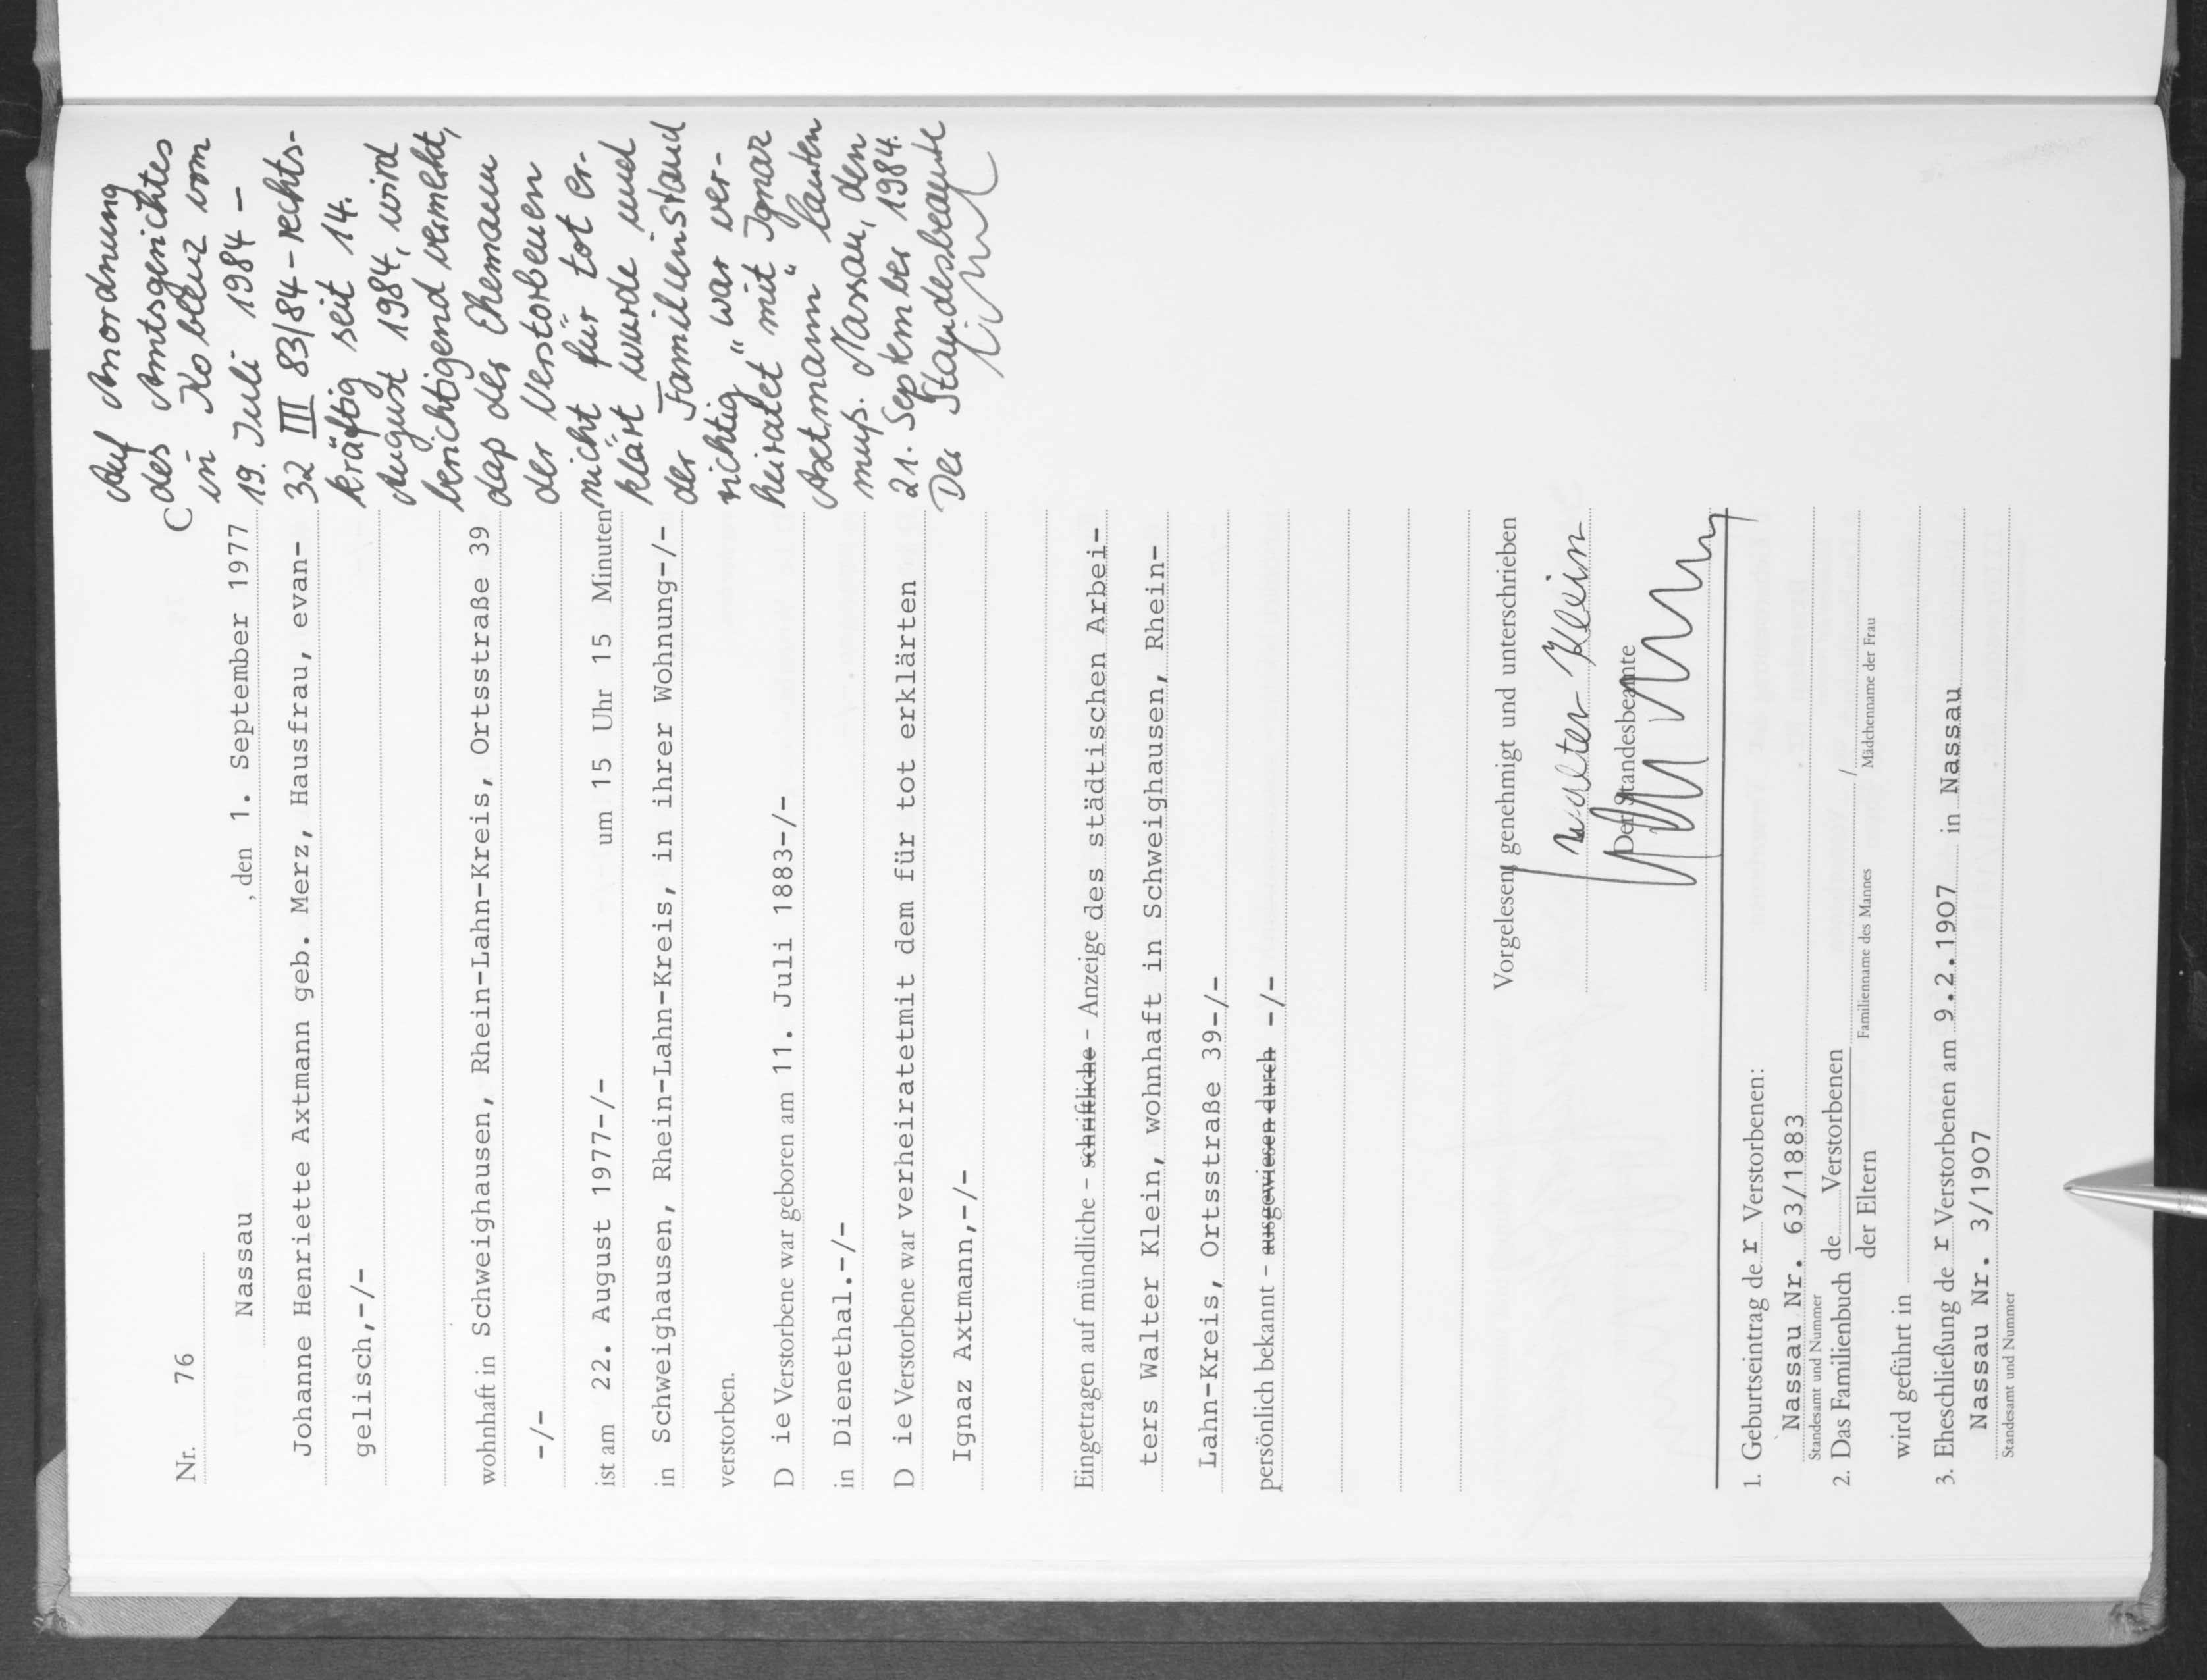 C
Nr. 76
Nassau , den 1. September 1977
Johanne Henriette Axtmann geb. Merz, Hausfrau, evan-
gelisch,-/-
wohnhaft in Schweighausen, Rhein-Lahn-Kreis, Ortsstraße 39
-/-
ist am 22. August 1977-/- um 15 Uhr 15 Minuten
in Schweighausen, Rhein-Lahn-Kreis, in ihrer Wohnung-/-
verstorben.
D ie Verstorbene war geboren am 11. Juli 1883-/-
in Dienethal.-/-
D ie Verstorbene war verheiratetmit dem für tot erklärten
Ignaz Axtmann,-/-
Eingetragen auf mündliche - schriftliche - Anzeige des städtischen Arbei-
ters Walter Klein, wohnhaft in Schweighausen, Rhein-
Lahn-Kreis, Ortsstraße 39-/-
persönlich bekannt - ausgewiesen durch -/-
Vorgelesen, genehmigt und unterschrieben
Walter Klein
Der Standesbeamte
1. Geburtseintrag de r Verstorbenen:
Nassau Nr. 63/1883
Standesamt und Nummer
2. Das Familienbuch de Verstorbenen /
der Eltern Familienname des Mannes Mädchenname der Frau
wird geführt in
3. Eheschließung de r Verstorbenen am 9.2.1907 in Nassau
Nassau Nr. 3/1907
Standesamt und Nummer
Auf Anordnung
des Amtsgerichtes
in Koblenz vom
19. Juli 1984 -
32 III 83/84 - rechts-
kräftig seit 14.
August 1984, wird
berichtigend vermerkt,
daß der Ehemann
der Verstorbenen
nicht für tot er-
klärt wurde und
der Familienstand
richtig "war ver-
heiratet mit Ignaz
Axtmann" lauten
muß. Nassau, den
21. September 1984.
Der Standesbeamte